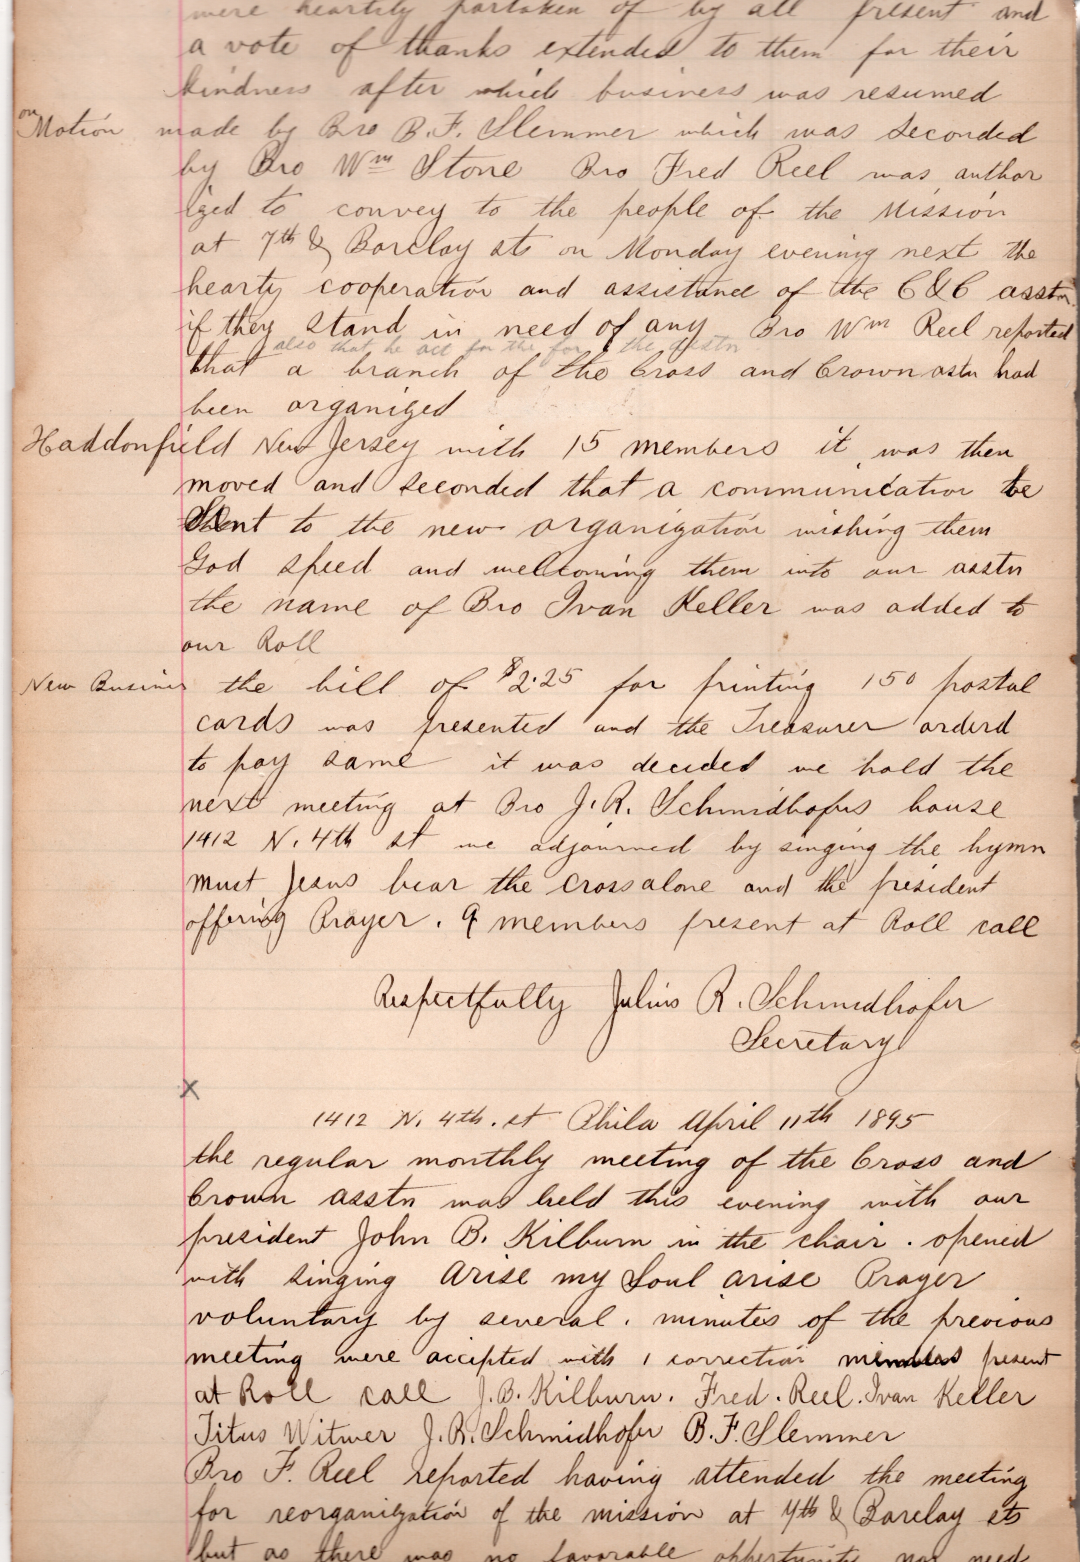 were heartily partaken of by all present and
a vote of thanks extended to them for their
kindness after which business was resumed
on Motion made by Bro B.F. Slemmer which was seconded
by Bro Wm Stone Bro Fred Reel was author
ized to convey to the people of the Mission
at 7th & Barclay sts on Monday evening next the
hearty cooperation and assistance of the C&C asstn
if they stand in need of any Bro Wm Reel reported
also that he act for the the asstn
that a branch of the Cross and Crown asstn had
been organized
Haddonfield New Jersey with 15 members it was then
moved and seconded that a communication be
Sent to the new organization wishing them
God speed and wellcoming them into our asstn
the name of Bro Ivan Keller was added to
our Roll
New Busines the bill of $2.25 for printing 150 postal
cards was presented and the Treasurer orderd
to pay same it was decided we hold the
next meeting at Bro J.R. Schmidhofers house
1412 N. 4th st we adjourned by singing the hymn
Must Jesus bear the cross alone and the president
offering Prayer. 9 members present at Roll call
Respectfully Julius R. Schmidhofer
Secretary
X
1412 N. 4th. st Phila April 11th 1895
the regular monthly meeting of the Cross and
Crown asstn was held this evening with our
president John B. Kilburn in the chair. opened
with singing Arise my Soul arise Prayer
voluntary by several. minutes of the previous
meeting were accepted with 1 correction members present
at Roll call J.B. Kilburn. Fred. Reel. Ivan Keller
Titus Witmer J.R. Schmidhofer B.F. Slemmer
Bro F. Reel reported having attended the meeting
for reorganization of the mission at 7th & Barclay sts
but as there was no favorable opportunity nor need